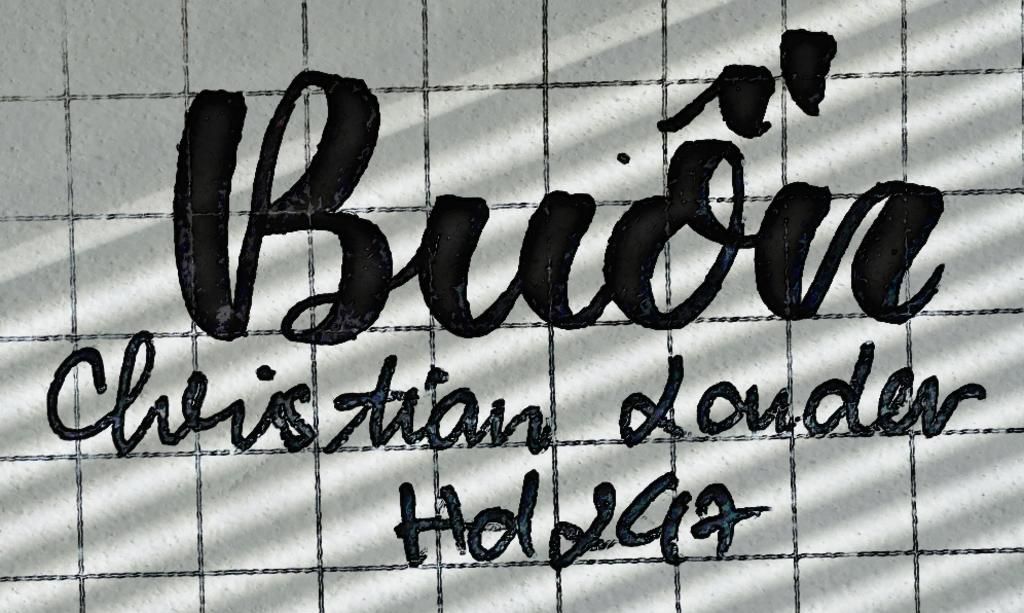 Buồn
Christian Louder
Hd297